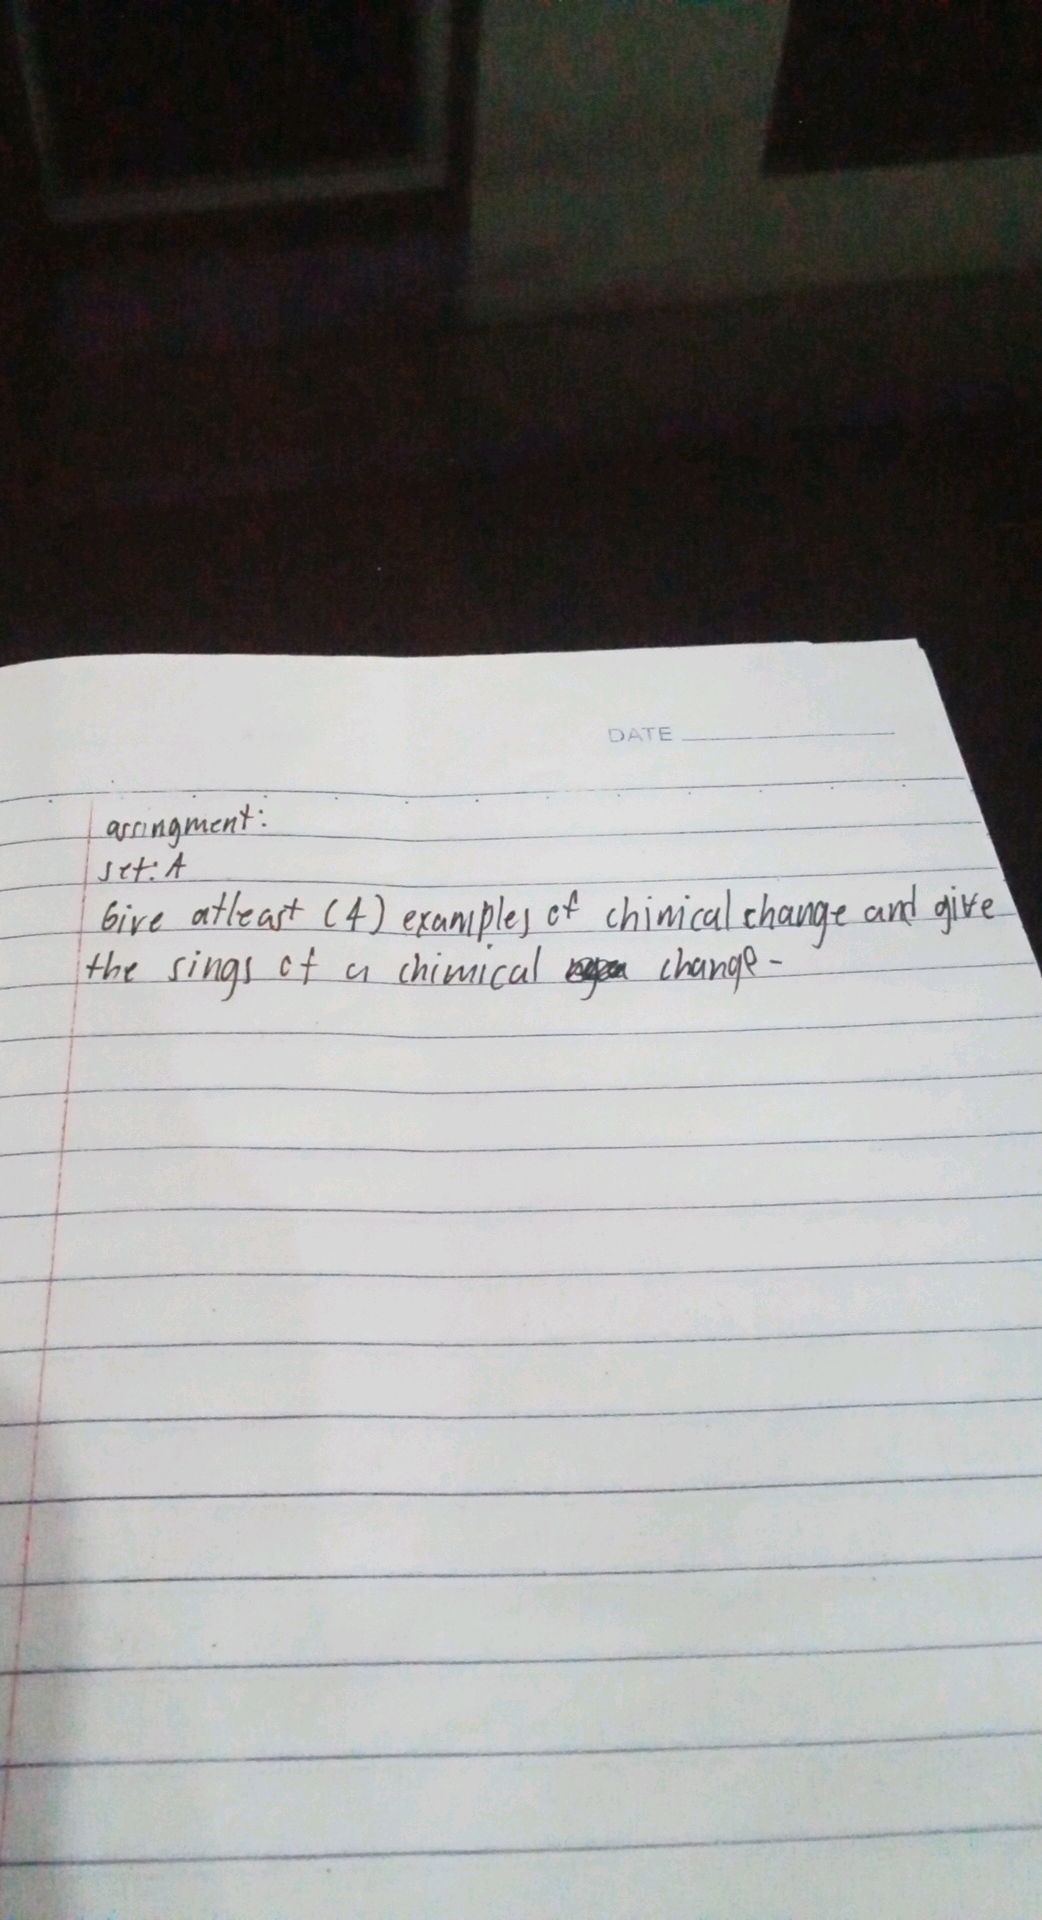 DATE
assingment:
set: A
Give atleast (4) examples of chimical change and give
the sings of a chimical change-